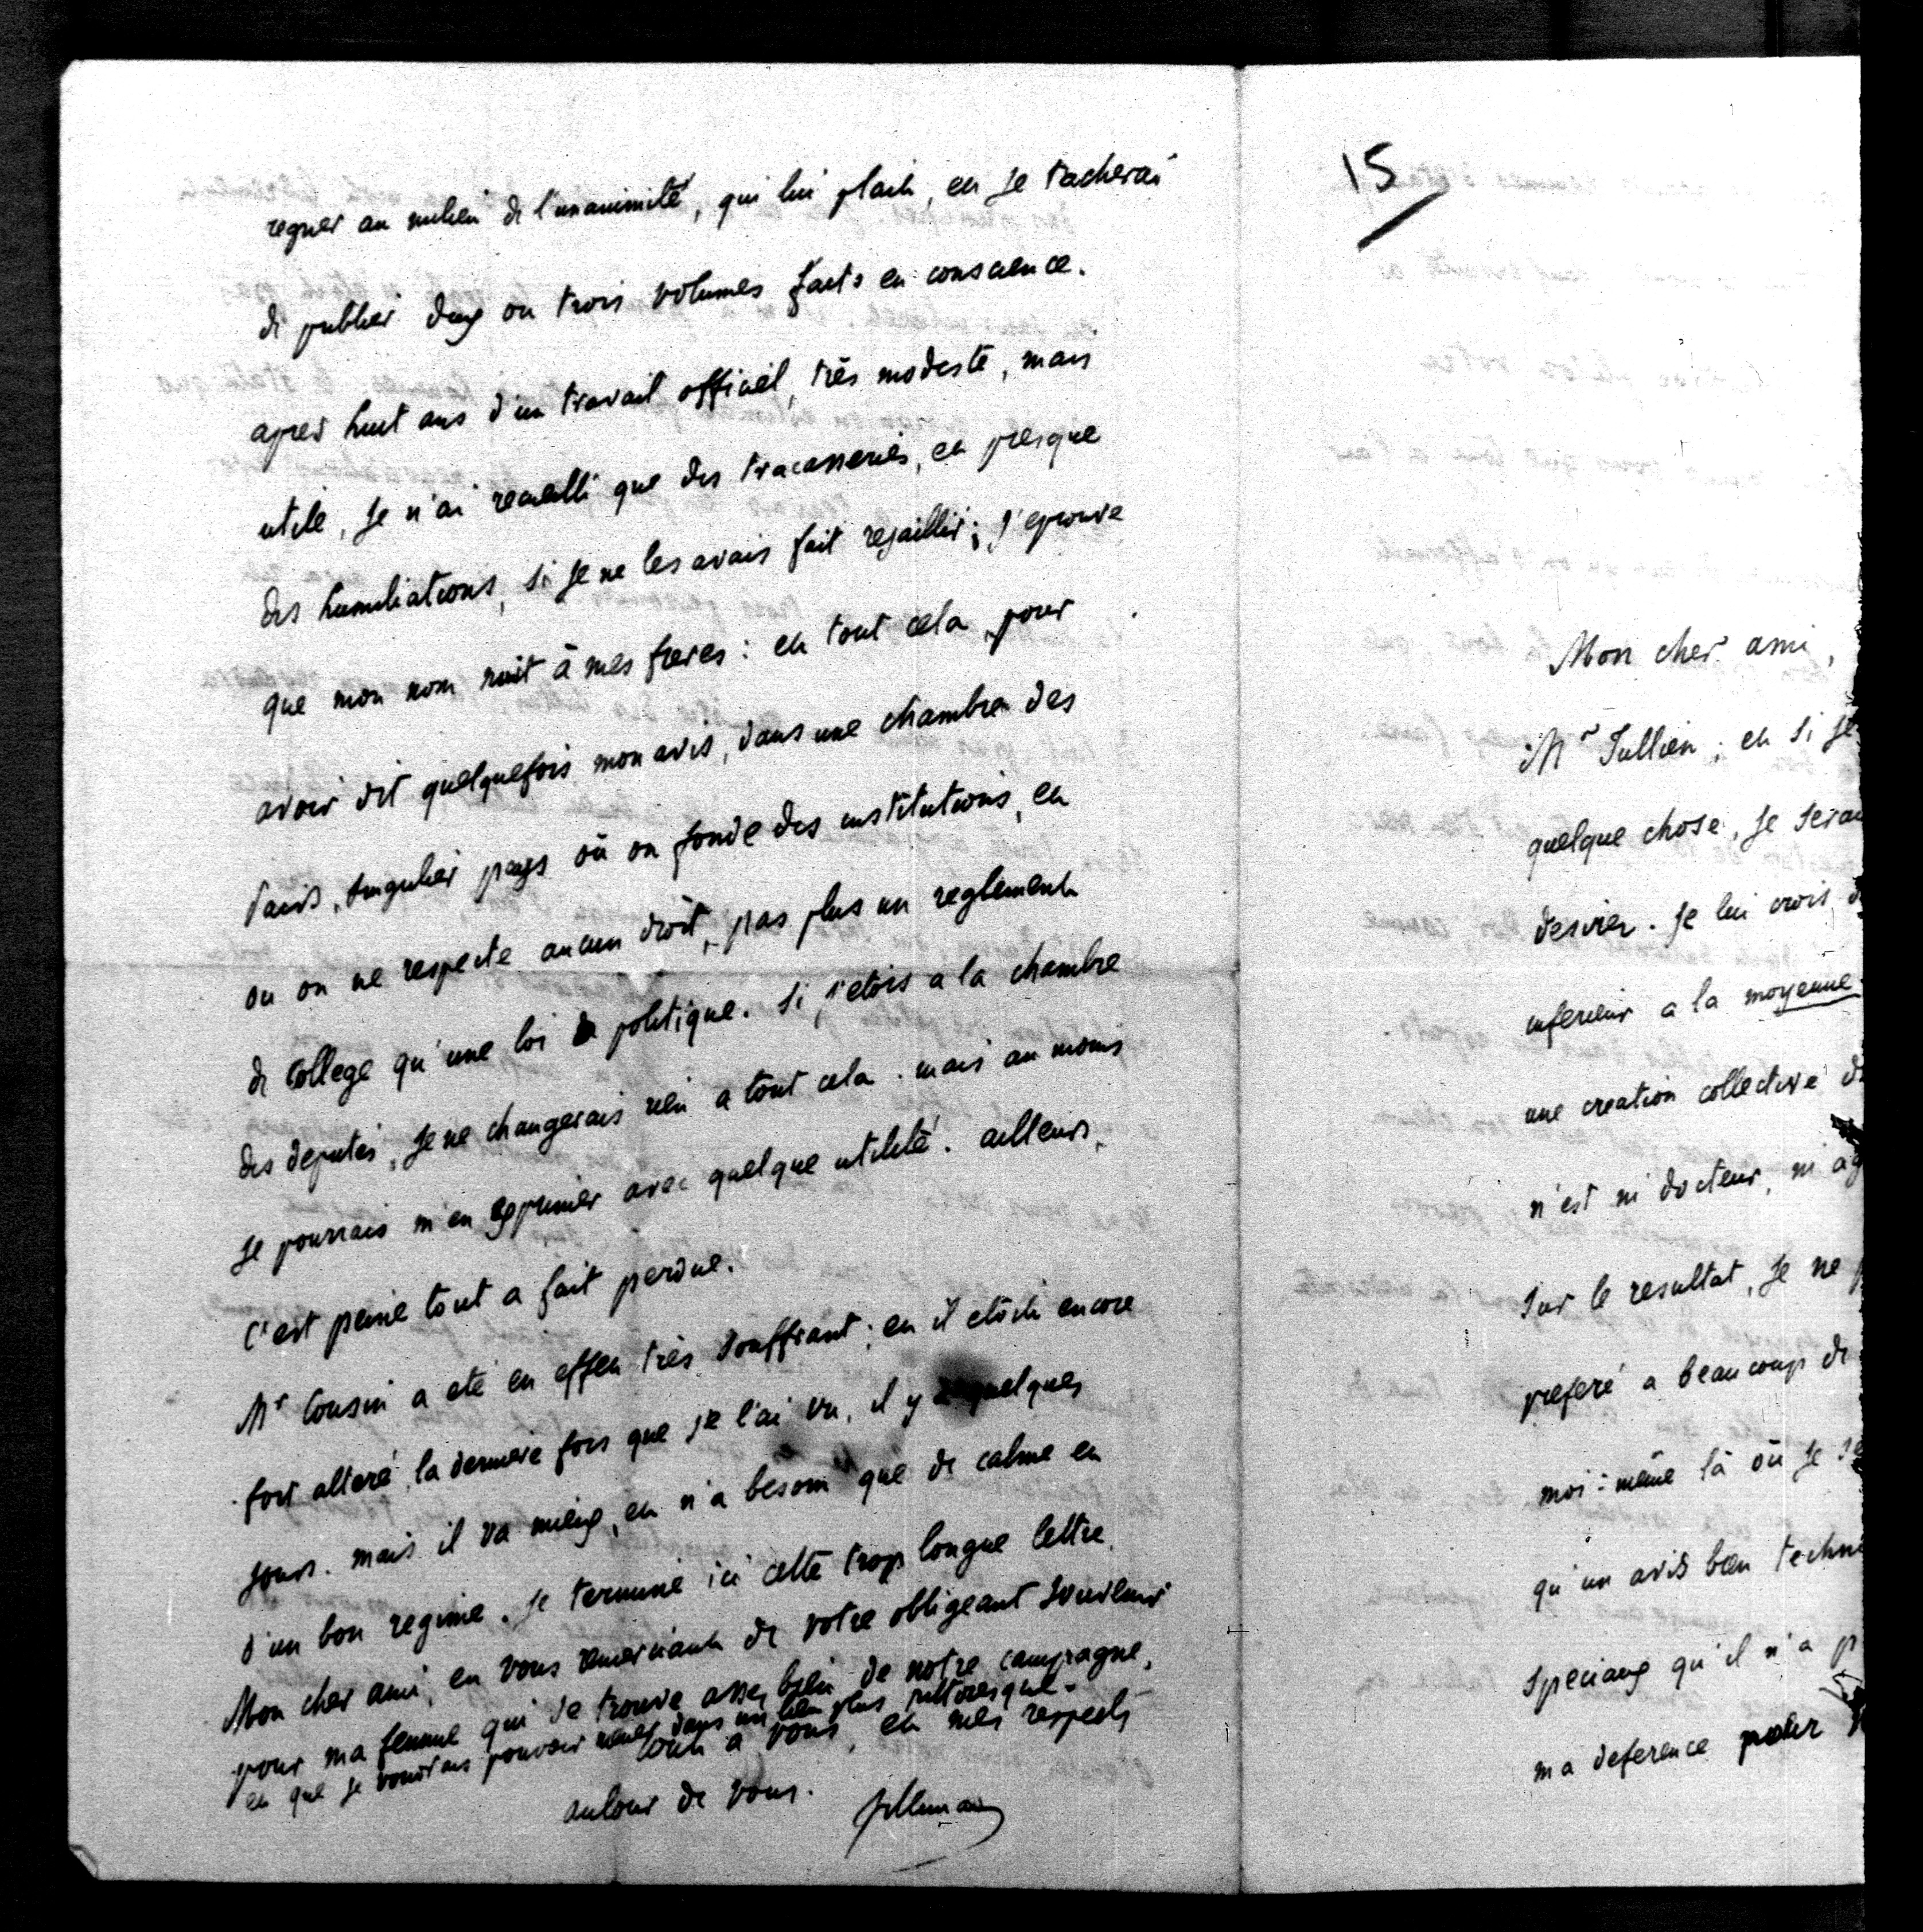 regner au milieu de l'unanimité, qui lui plait, et je tacherai
de publier deux ou trois volumes faits en conscience.
apres huit ans d'un travail officiel, très modeste, mais
utile, je n'ai recueilli que des tracasseries, et presque
des humiliations, si je ne les avais fait rejaillir; j'eprouve
que mon nom nuit à mes freres: et tout cela pour
avoir dit quelquefois mon avis, dans une chambre des
Pairs. singulier pays où on fonde des institutions, et
ou on ne respecte aucun droit, pas plus un reglement
de College qu'une loi politique. si j'etois a la chambre
des deputés, je ne changerais rien a tout cela. mais au moins
je pourrais m'en exprimer avec quelque utilité. ailleurs,
c'est peine tout a fait perdue.
Mr Cousin a eté en effet très souffrant; et il etoit encore
fort alteré, la derniere fois que je l'ai vu, il y a quelques
jours. mais il va mieux, et n'a besoin que de calme et
d'un bon regime. je termine ici cette trop longue lettre,
Mon cher ami, en vous remerciant de votre obligeant souvenir
pour ma femme qui se trouve assez bien de notre campagne,
et que je voudrais pouvoir mener dans un lieu plus pittoresque.
tout a vous, et mes respects
autour de vous.
Villemain
15
Mon cher ami,
Mr Jullien; et si je
quelque chose, je serai
desirer. je lui crois
inferieur a la moyenne
une creation collective
n'est ni docteur, ni ag
sur le resultat, je ne
preferé a beaucoup de
moi-même là où je se
qu'un avis bien techni
speciaux qu'il n'a p
ma deference pour